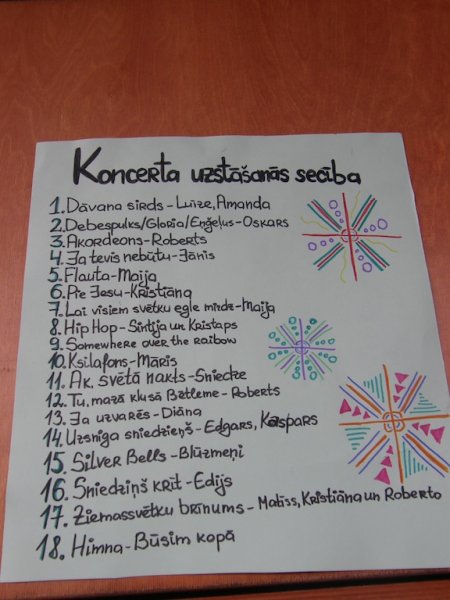 Koncerta uzstāšanās secība
1. Dāvana sirds - Luīze, Amanda
2. Debespulks/Gloria/Eņģeļus - Oskars
3. Akordeons - Roberts
4. Ja tevis nebūtu - Jānis
5. Flauta - Maija
6. Pie Jesu - Kristiāna
7. Lai visiem svētku egle mirdz - Maija
8. Hip Hop - Sintija un Kristaps
9. Somewhere over the raibow
10. Ksilafons - Māris
11. Ak, svētā nakts - Sniedze
12. Tu, mazā klusā Bētleme - Roberts
13. Ja uzvarēs - Diāna
14. Uzsniga sniedziņš - Edgars, Kaspars
15. Silver Bells - Blūzmeņi
16. Sniedziņš krīt - Edijs
17. Ziemassvētku brīnums - Matīss, Kristiāna un Roberto
18. Himna - Būsim kopā